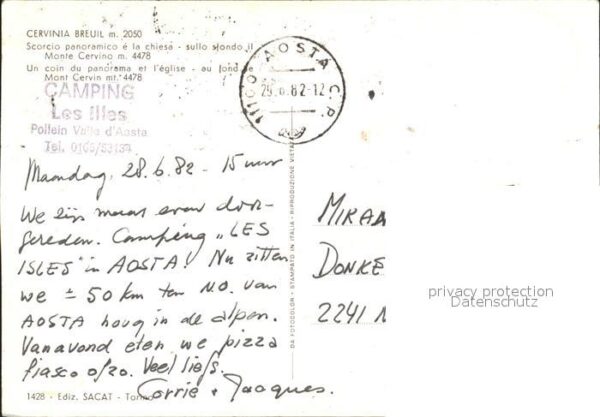 CERVINIA BREUIL m. 2050
Scorcio panoramico é la chiesa - sullo sfondo il
Monte Cervino m. 4478
Un coin du panorama et l'église - au fond le
Mont Cervin mt. 4478
CAMPING
Les Illes
Pollein Valle d'Aosta
Tel. 0165/
AOSTA C.P.
29.6.82-12
Maandag, 28.6.82 - 15 uur
We zijn maar even door-
gereden. Camping "LES
ISLES" in AOSTA! Nu zitten
we ± 50 km ten N.O. van
AOSTA hoog in de alpen.
Vanavond eten we pizza
fiasco o/zo. Veel liefs.
Corrie + Jacques.
MIRA
DONKE
2241
DA FOTOCOLOR - STAMPATO IN ITALIA - RIPRODUZIONE VIETATA
1428 - Ediz. SACAT - Torino
privacy protection
Datenschutz